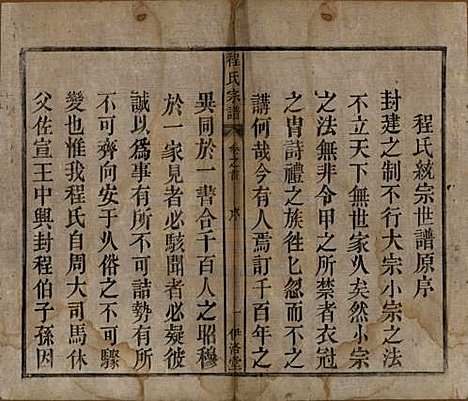 程氏統宗世譜原序
封建之制不行大宗小宗之法
不立天下無世家乆矣然小宗
之法無非令甲之所禁者衣冠
之胄詩禮之族徃乆忽而不之
講何哉今有人焉訂千百年之
程氏宗譜
卷之首
序
一
伊洛堂
異同於一書合千百人之昭穆
於一家見者必駭聞者必疑彼
誠以為事有所不可詰勢有所
不可齊向安于乆俗之不可驟
變也惟我程氏自周大司馬休
父佐宣王中興封程伯子孫因